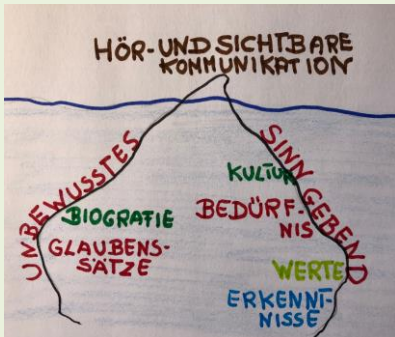 HÖR-UND SICHTBARE
KOMMUNIKATION
UNBEWUSSTES
SINNGEBEND
KULTUR
BIOGRAFIE
BEDÜRF-
NIS
GLAUBENS-
SÄTZE
WERTE
ERKENNT-
NISSE